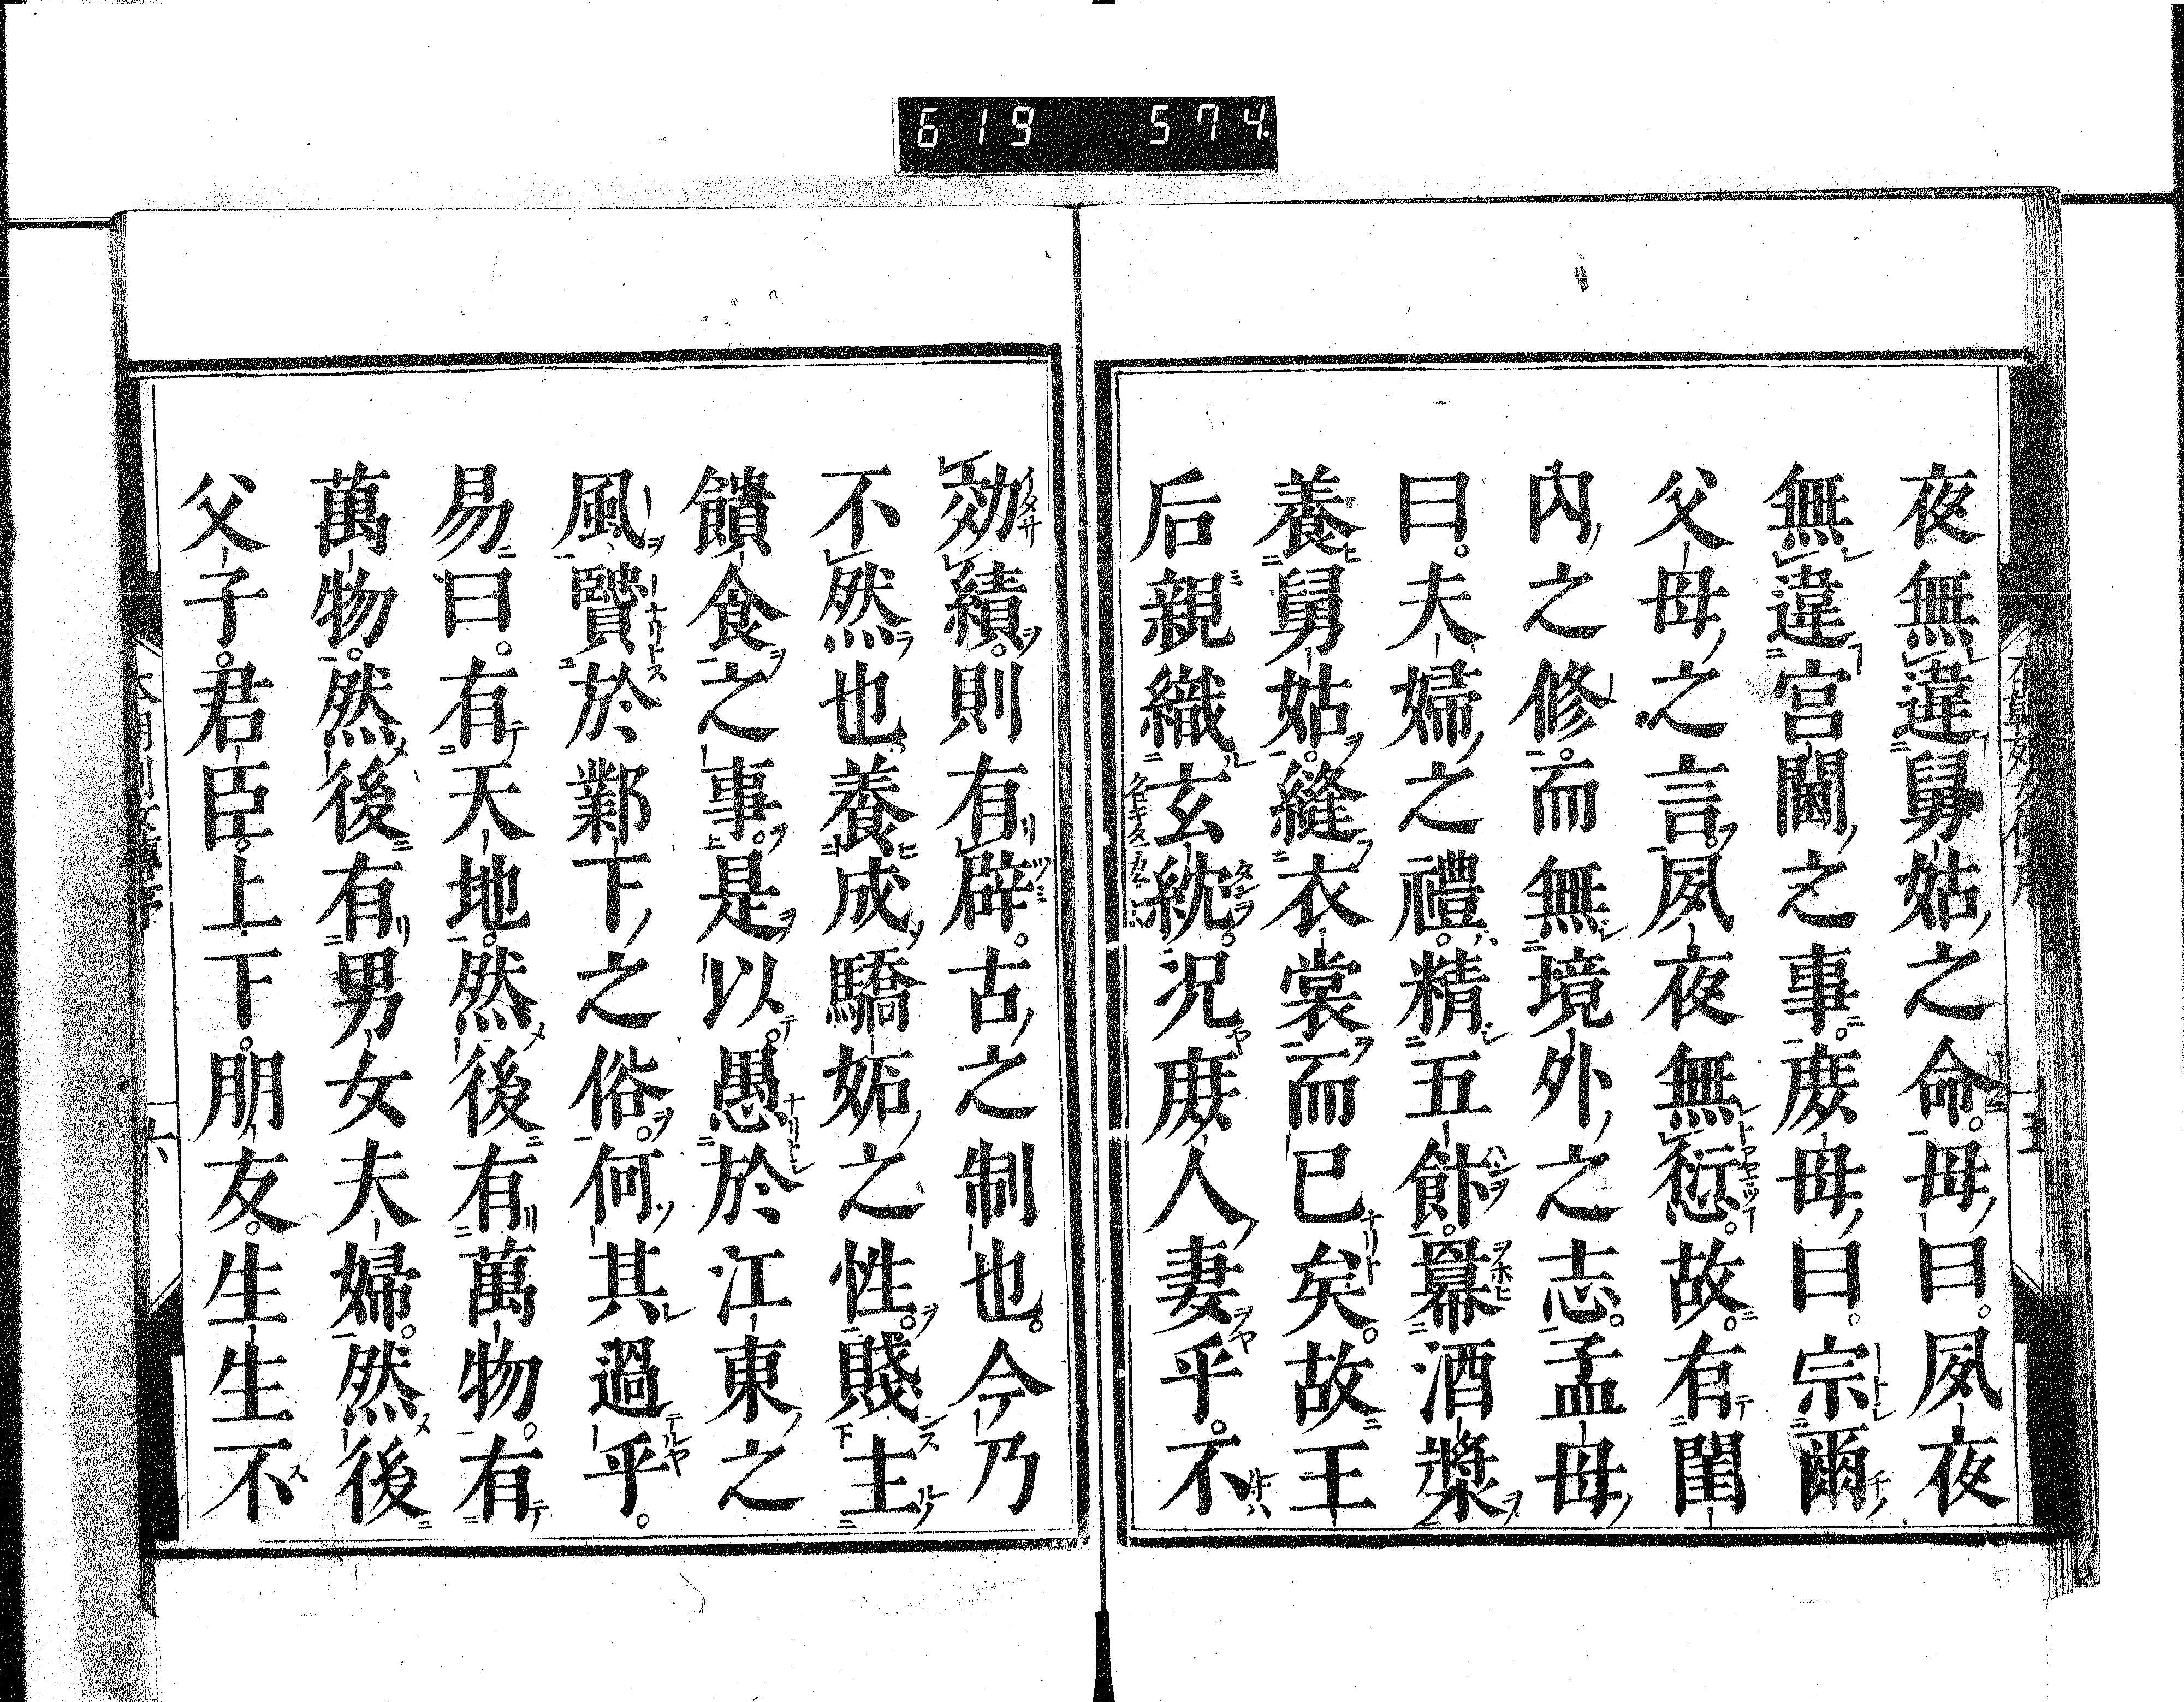 619 574
夜無違舅姑之命。母曰。夙夜
無違宮闈之事。庶母曰。宗爾
父母之言。夙夜無愆。故有閨
內之修。而無境外之志。孟母
曰。夫婦之禮。精五飰。羃酒漿
養舅姑。縫衣裳而已矣。故王
后親織玄紞。況庶人妻乎。不
効績。則有辟。古之制也。今乃
不然也。養成驕妬之性。賤主
饋食之事。是以。愚於江東之
風贒於鄴下之俗。何其過乎。
易曰。有天地。然後有萬物。有
萬物。然後有男女夫婦。然後
父子。君臣。上下。朋友。生生不
五
六